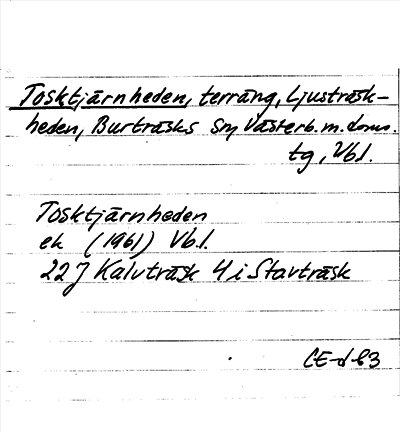 Tosktjärnheden, terräng, Ljusträsk-
heden, Burträsks sn, Västerb. m. doms.
tg, Vbl.
Tosktjärnheden
ek (1961) Vb.l.
22 J Kalvträsk 4 i Stavträsk
CE-d 63